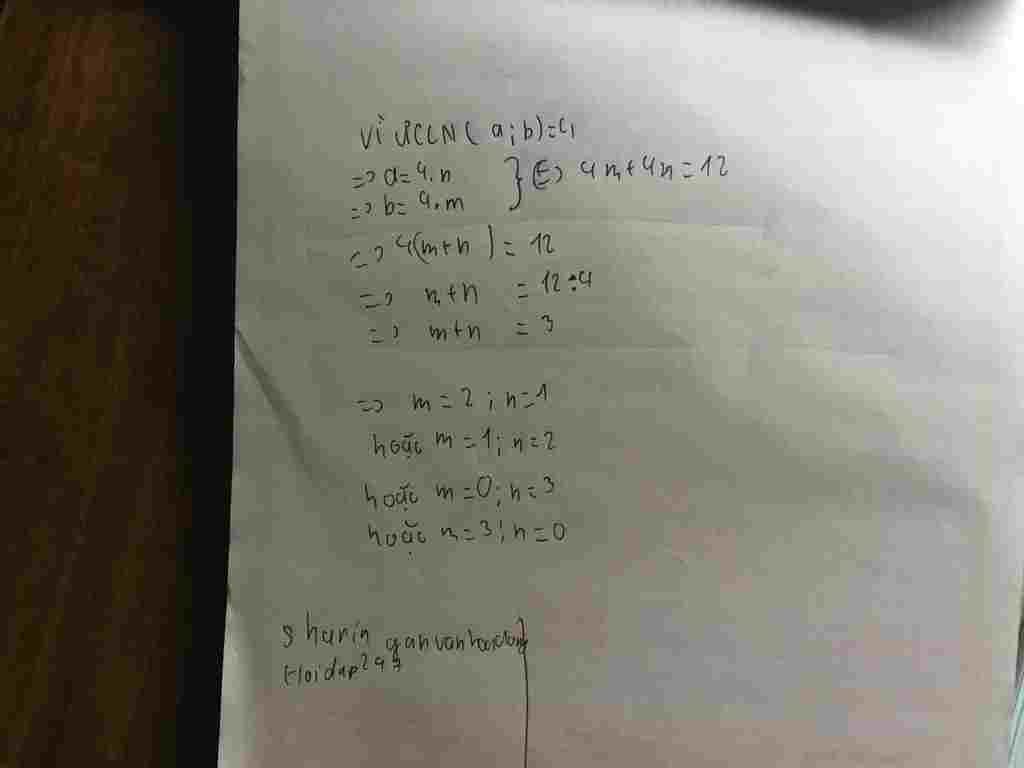 Vì ƯCLN( a;b)=4
=> a=4.n } => 4m+4n=12
=> b=4.m
=> 4(m+n) = 12
=> m+n = 12:4
=> m+n = 3
=> m=2; n=1
hoặc m=1; n=2
hoặc m=0; n=3
hoặc m=3; n=0